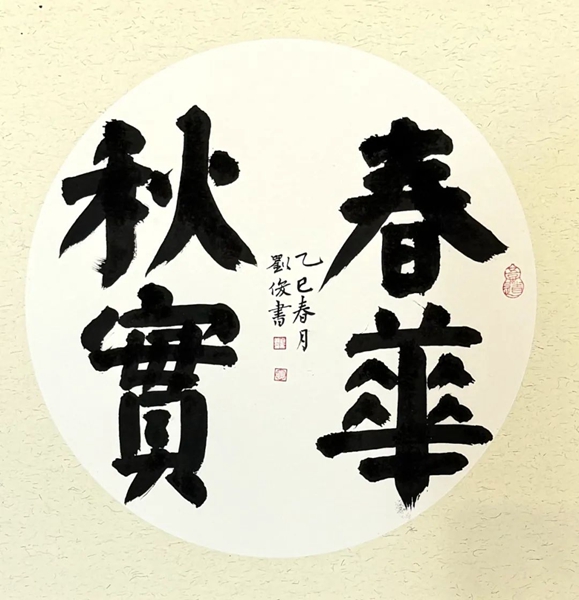 春華
秋實
乙巳春月
劉俊書